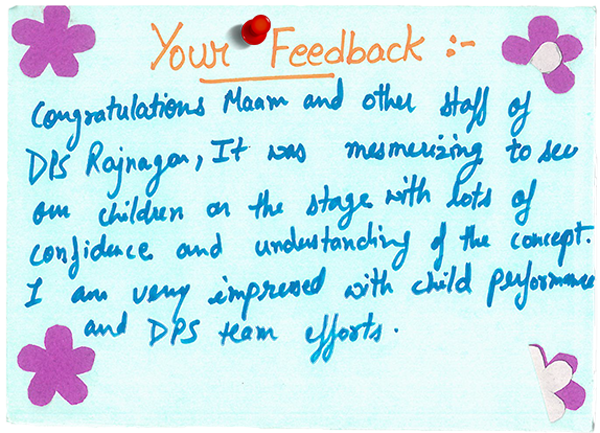 Your Feedback :-
Congratulations Maam and other staff of
DPS Rajnagar, It was mesmerizing to see
our children on the stage with lots of
confidence and understanding of the concept.
I am very impressed with child performance
and DPS team efforts.